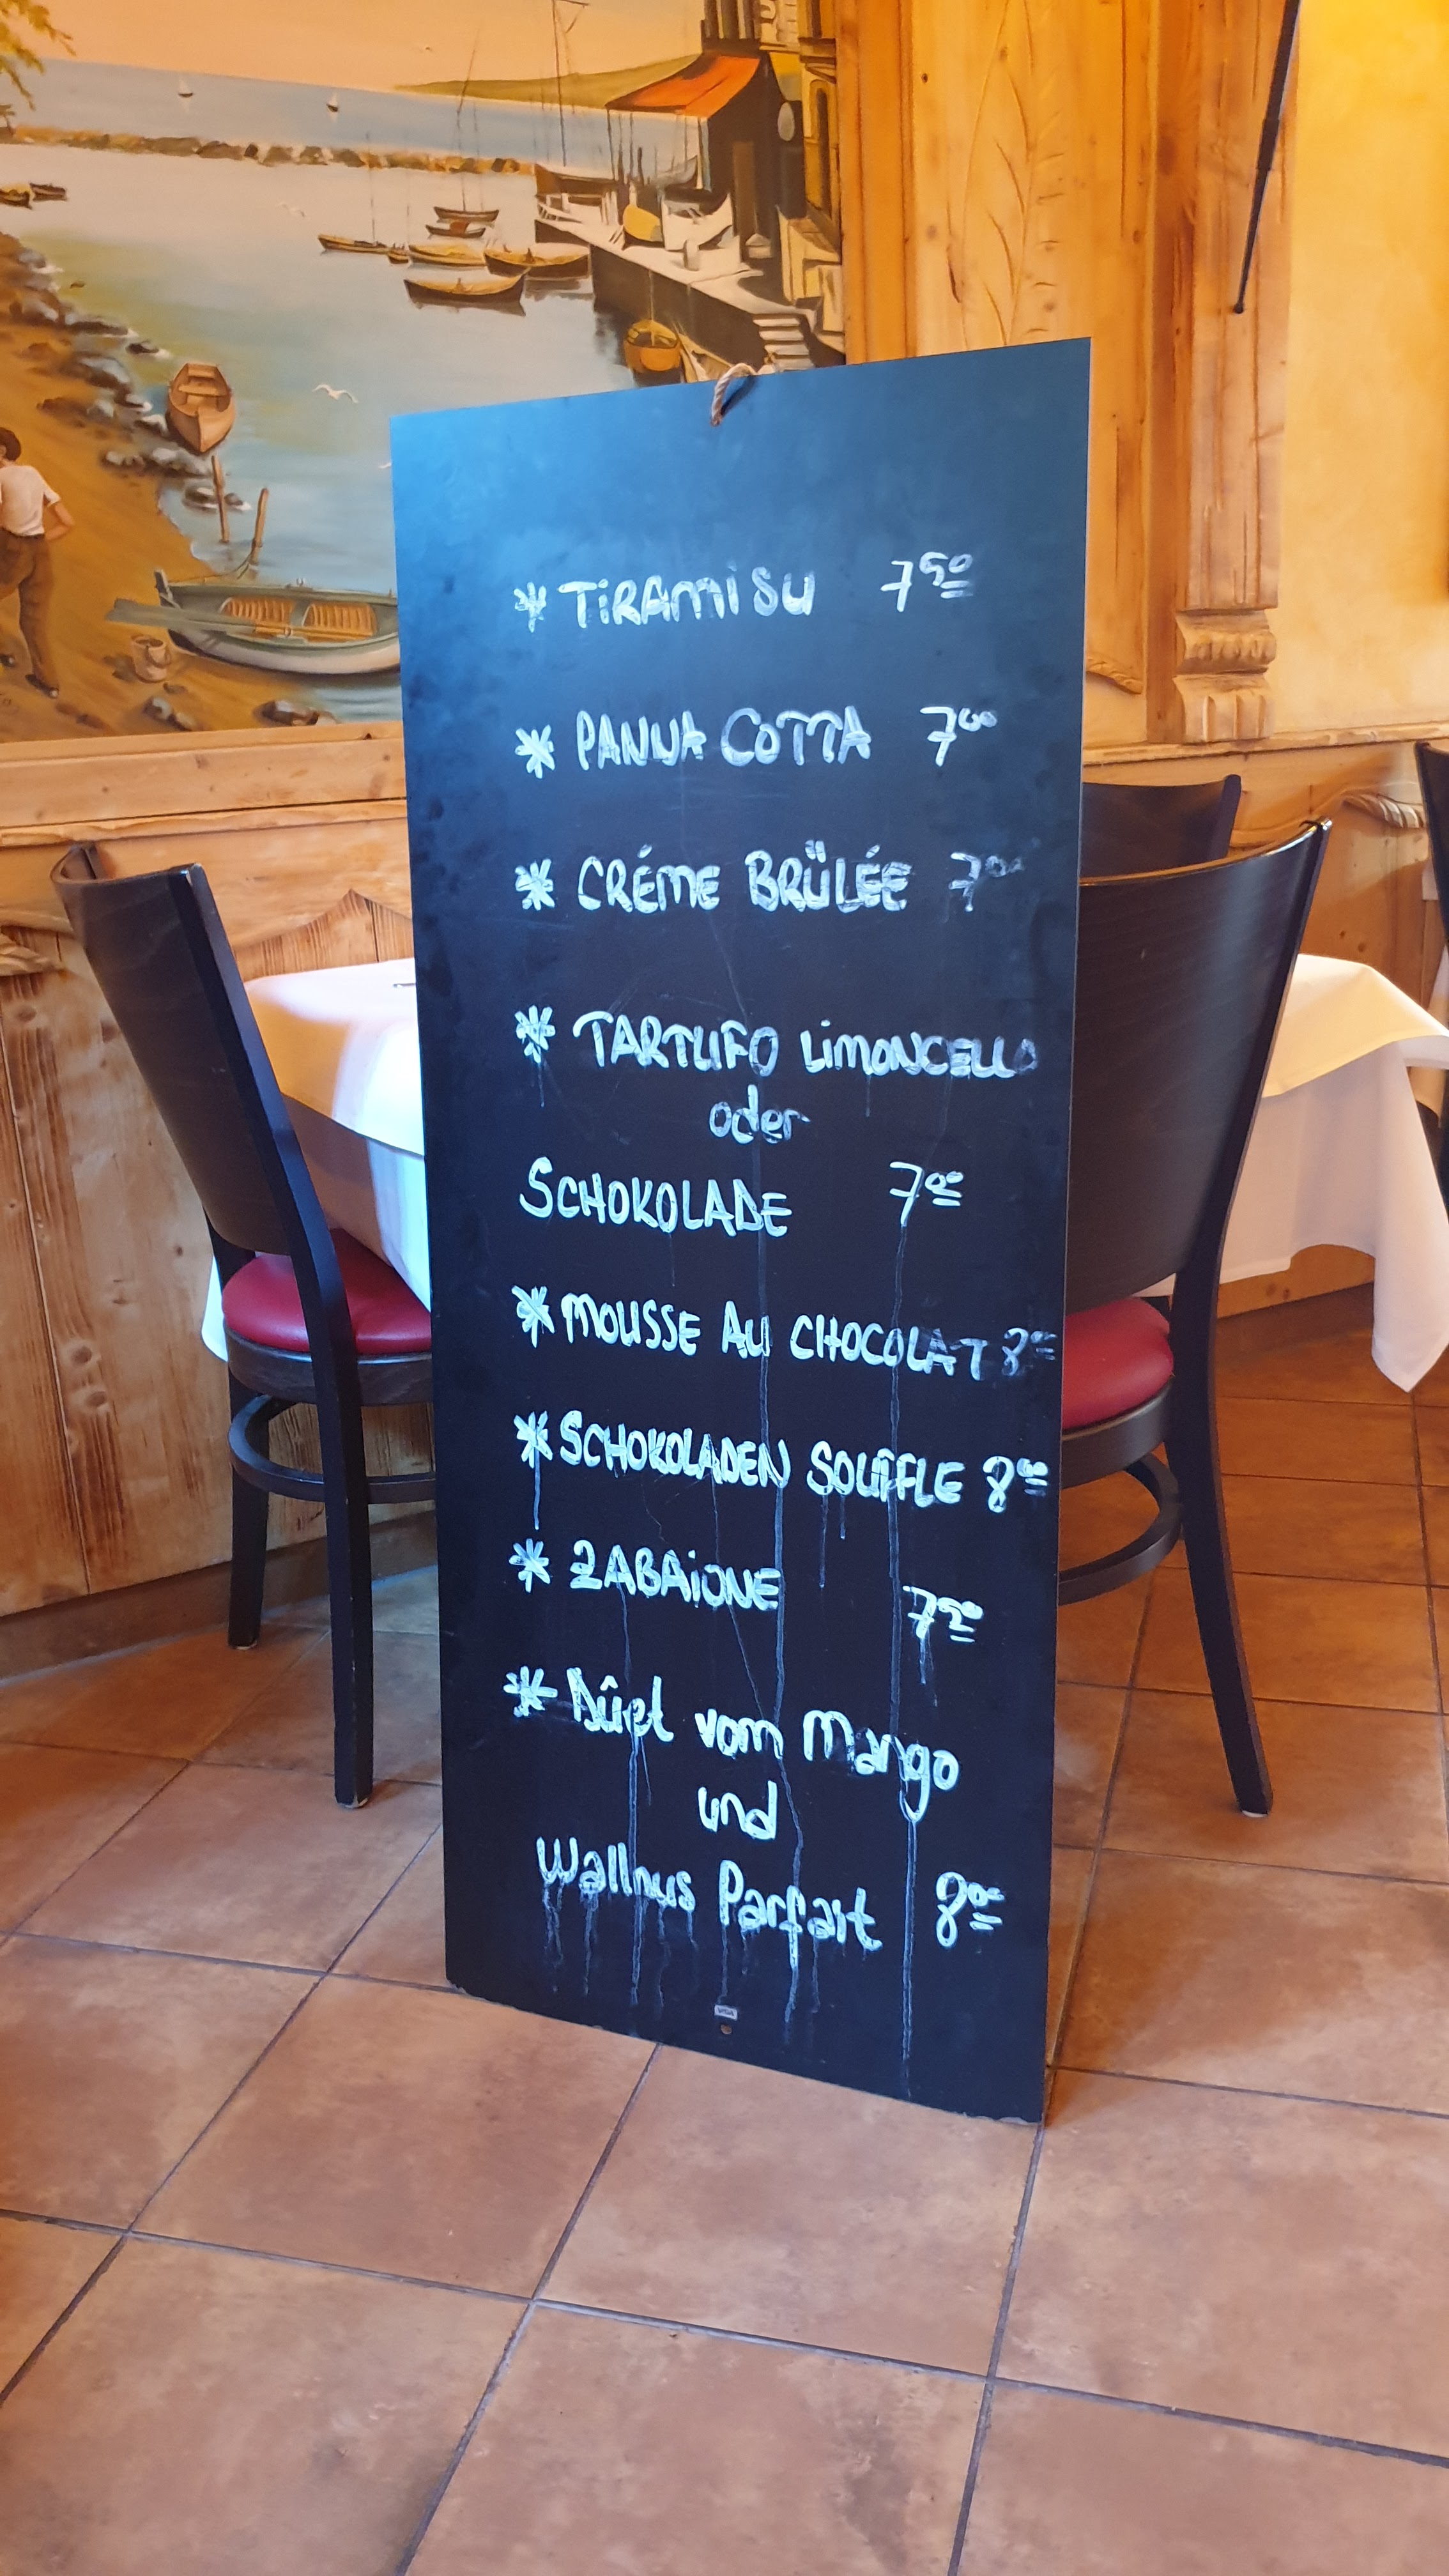 * TIRAMISU 7⁵⁰
* PANNA COTTA 7⁰⁰
* CRÉME BRÜLÉE 7⁰⁰
* TARTUFO LIMONCELLO
oder
SCHOKOLADE 7⁰⁰
* MOUSSE AU CHOCOLAT 8
* SCHOKOLADEN SOUFFLE 8⁰⁰
* ZABAIONE
7⁵⁰
* Dûet vom Mango
und
Wallnus Parfait 8⁰⁰